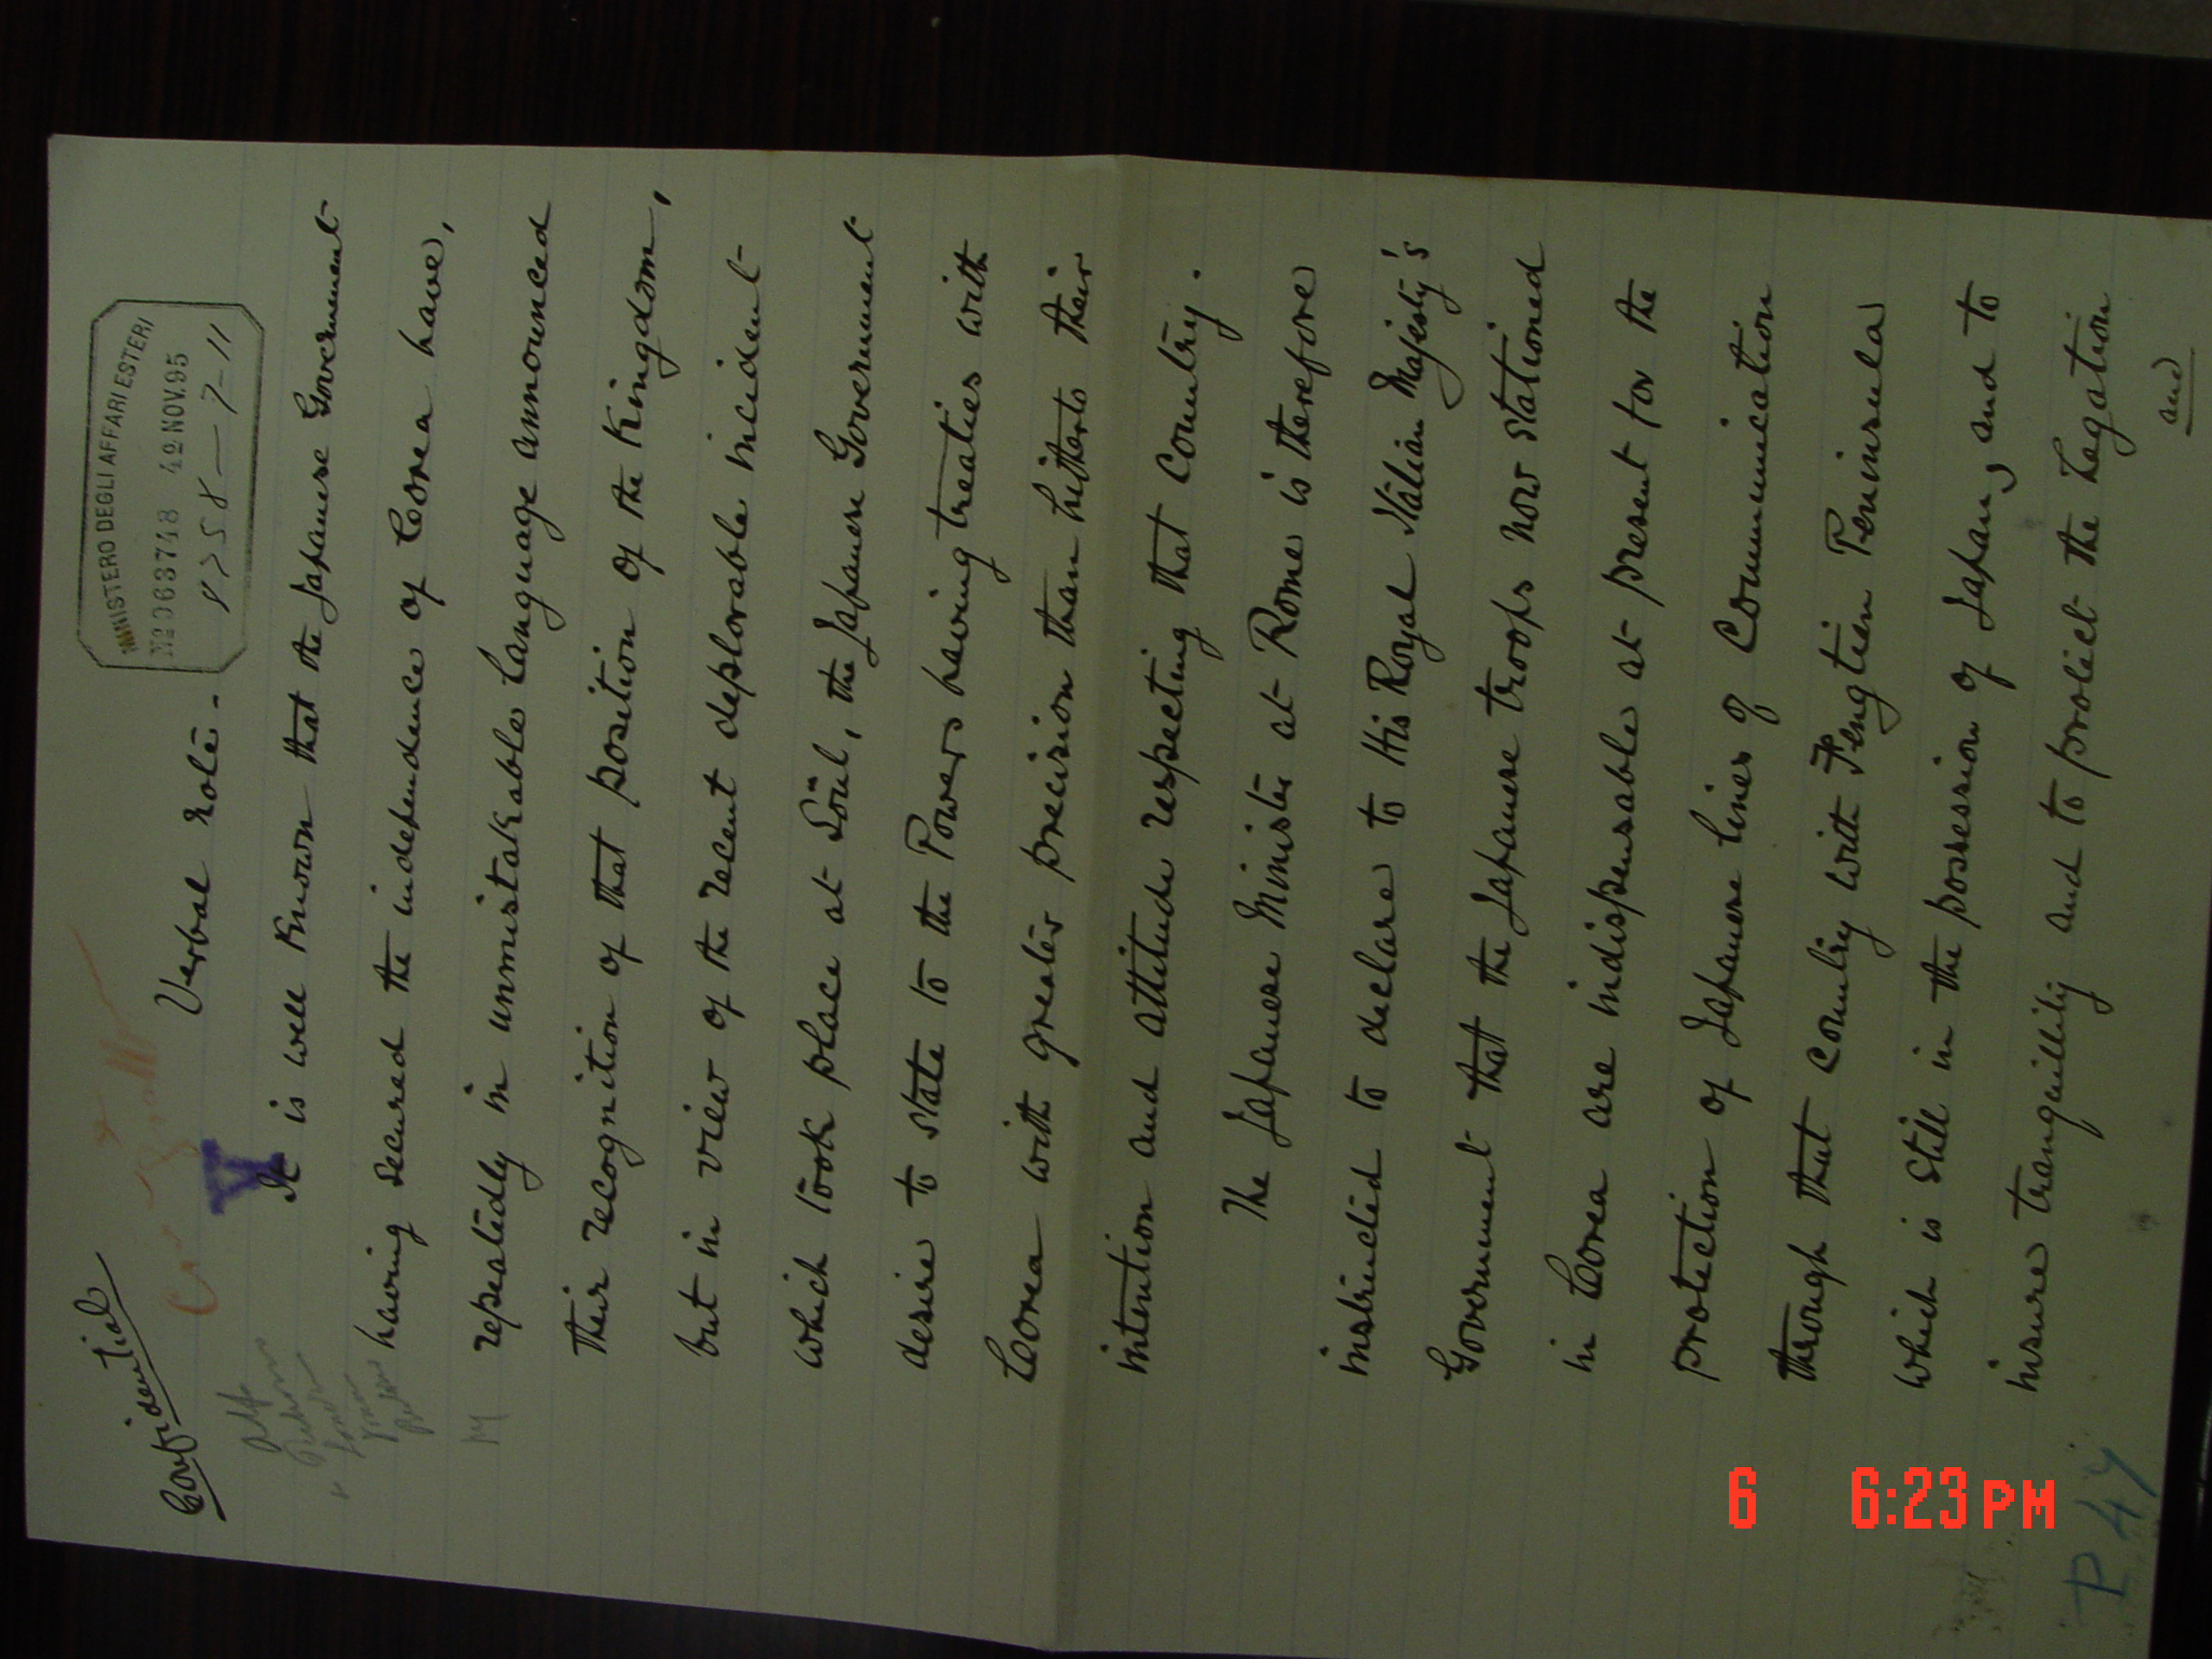 Confidential
MINISTERO DEGLI AFFARI ESTERI
No 063748 42 NOV.95
Verbal note.
It is well known that the Japanese Government
having secured the independence of Corea have,
repeatedly in unmistakable language announced
their recognition of that position of the Kingdom,
but in view of the recent deplorable incident
which took place at Söul, the Japanese Government
desire to state to the Powers having treaties with
Corea with greater precision than hitherto their
intention and attitude respecting that Country.
The Japanese Minister at Rome is therefore
instructed to declare to His Royal Italian Majesty's
Government that the Japanese troops now stationed
in Corea are indispensable at present for the
protection of Japanese lines of Communication
through that country with Fengtien Peninsula
which is still in the possession of Japan, and to
insure tranquillity and to protect the Legation
and
P 44
6 6:23PM